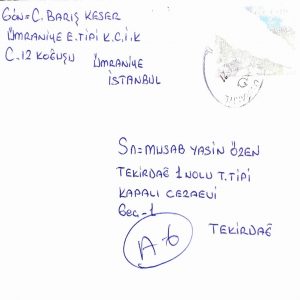 Gön=C. BARIŞ KESER
ÜMRANİYE E.TİPİ K.C.İ.K
C.12 KOĞUŞU ÜMRANİYE
İSTANBUL
Sn=MUSAB YASİN ÖZEN
TEKİRDAĞ 1 NOLU T.TİPİ
KAPALI CEZAEVİ
Geç-1
A-6
TEKİRDAĞ